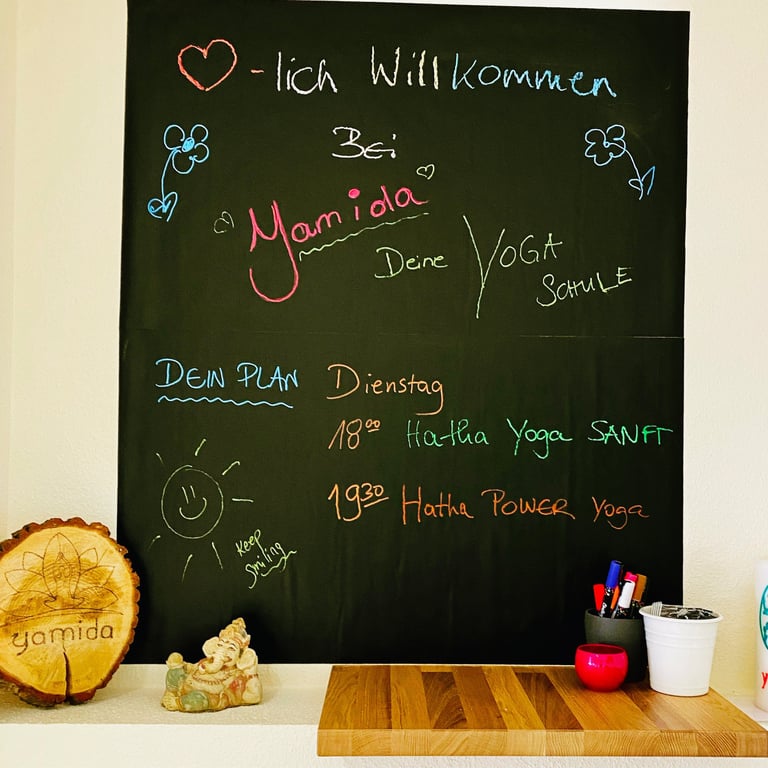 ❤-lich Willkommen
Bei
Yamida
Deine YOGA
SCHULE
DEIN PLAN Dienstag
18⁰⁰ Hatha Yoga SANFT
19³⁰ Hatha POWER Yoga
Keep
smiling
yamida